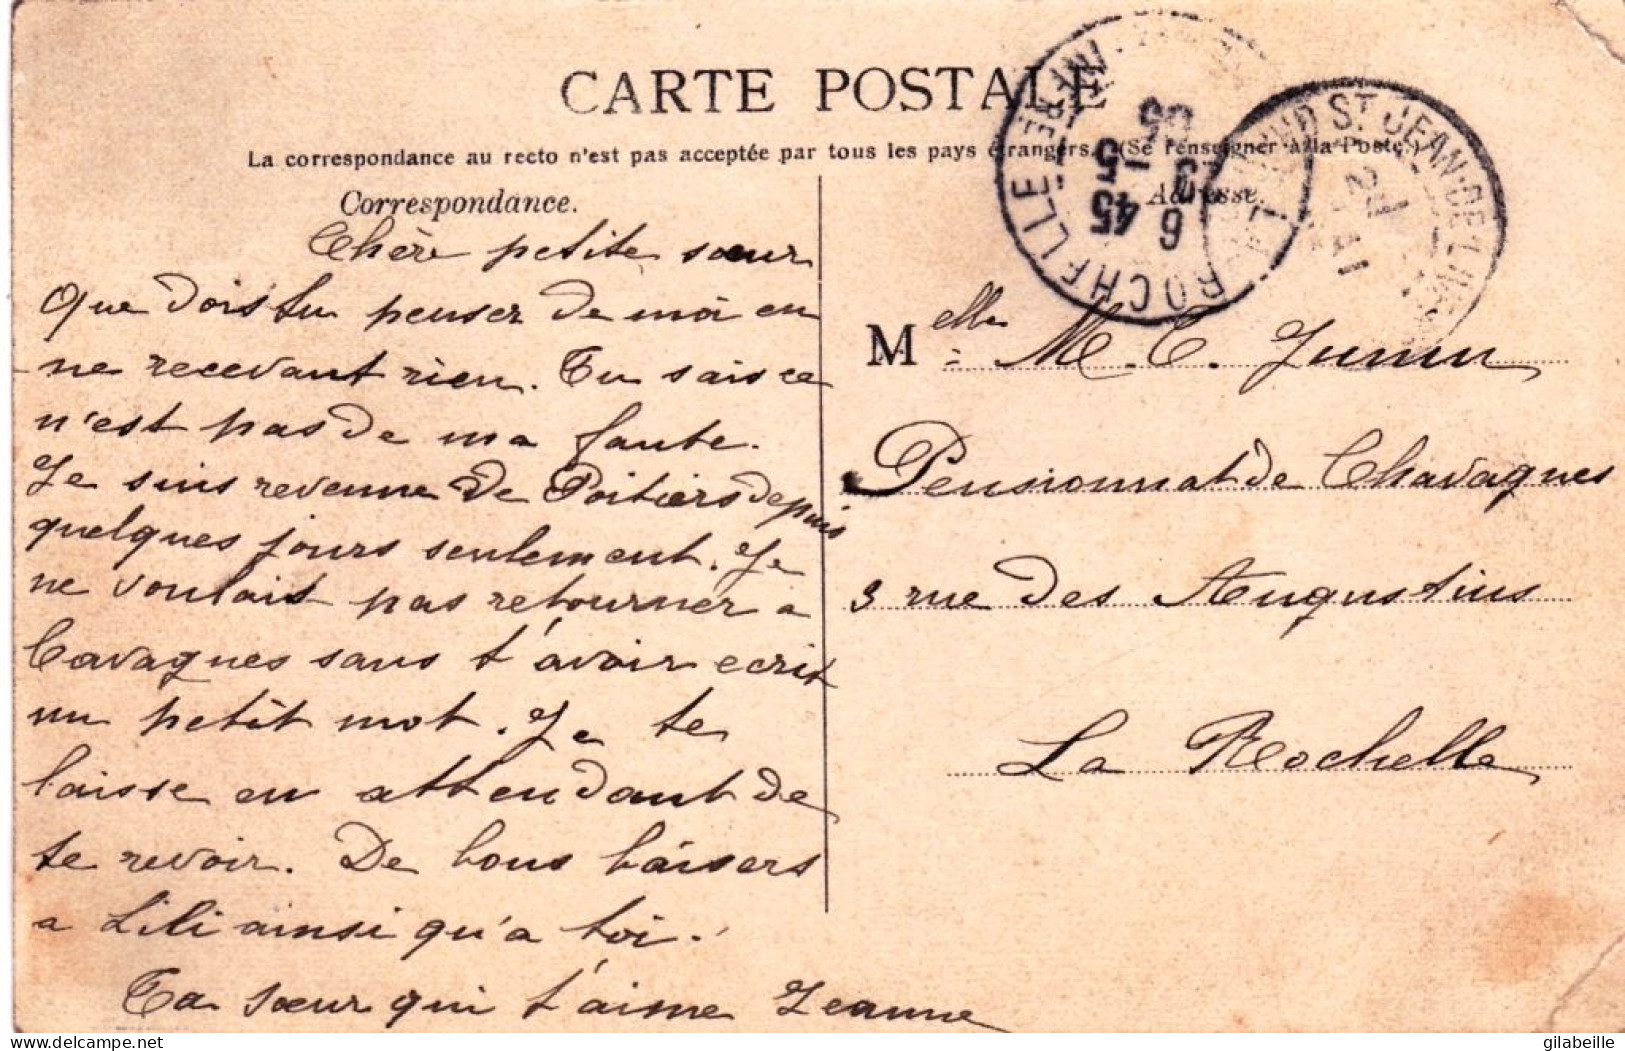 CARTE POSTALE
La correspondance au recto n'est pas acceptée par tous les pays étrangers. (Se renseigner à la Poste.)
Correspondance.
Chère petite sœur
Que dois tu penser de moi en
ne recevant rien. Tu sais ce
n'est pas de ma faute.
Je suis revenue de Poitiers depuis
quelques jours seulement. Je
ne voulait pas retourner a
Cavagnes sans t'avoir ecrit
un petit mot. Je te
laisse en attendant de
te revoir. De bons baisers
a Lili ainsi qu'a toi.
Ta sœur qui t'aime Jeanne
Adresse.
Melle M. C.
Pensionnat de Chavagnes
3 rue des Augustins
La Rochelle
ROCHELLE
6
45
ST JEAN-DE-L
delcampe.net
gilabeille